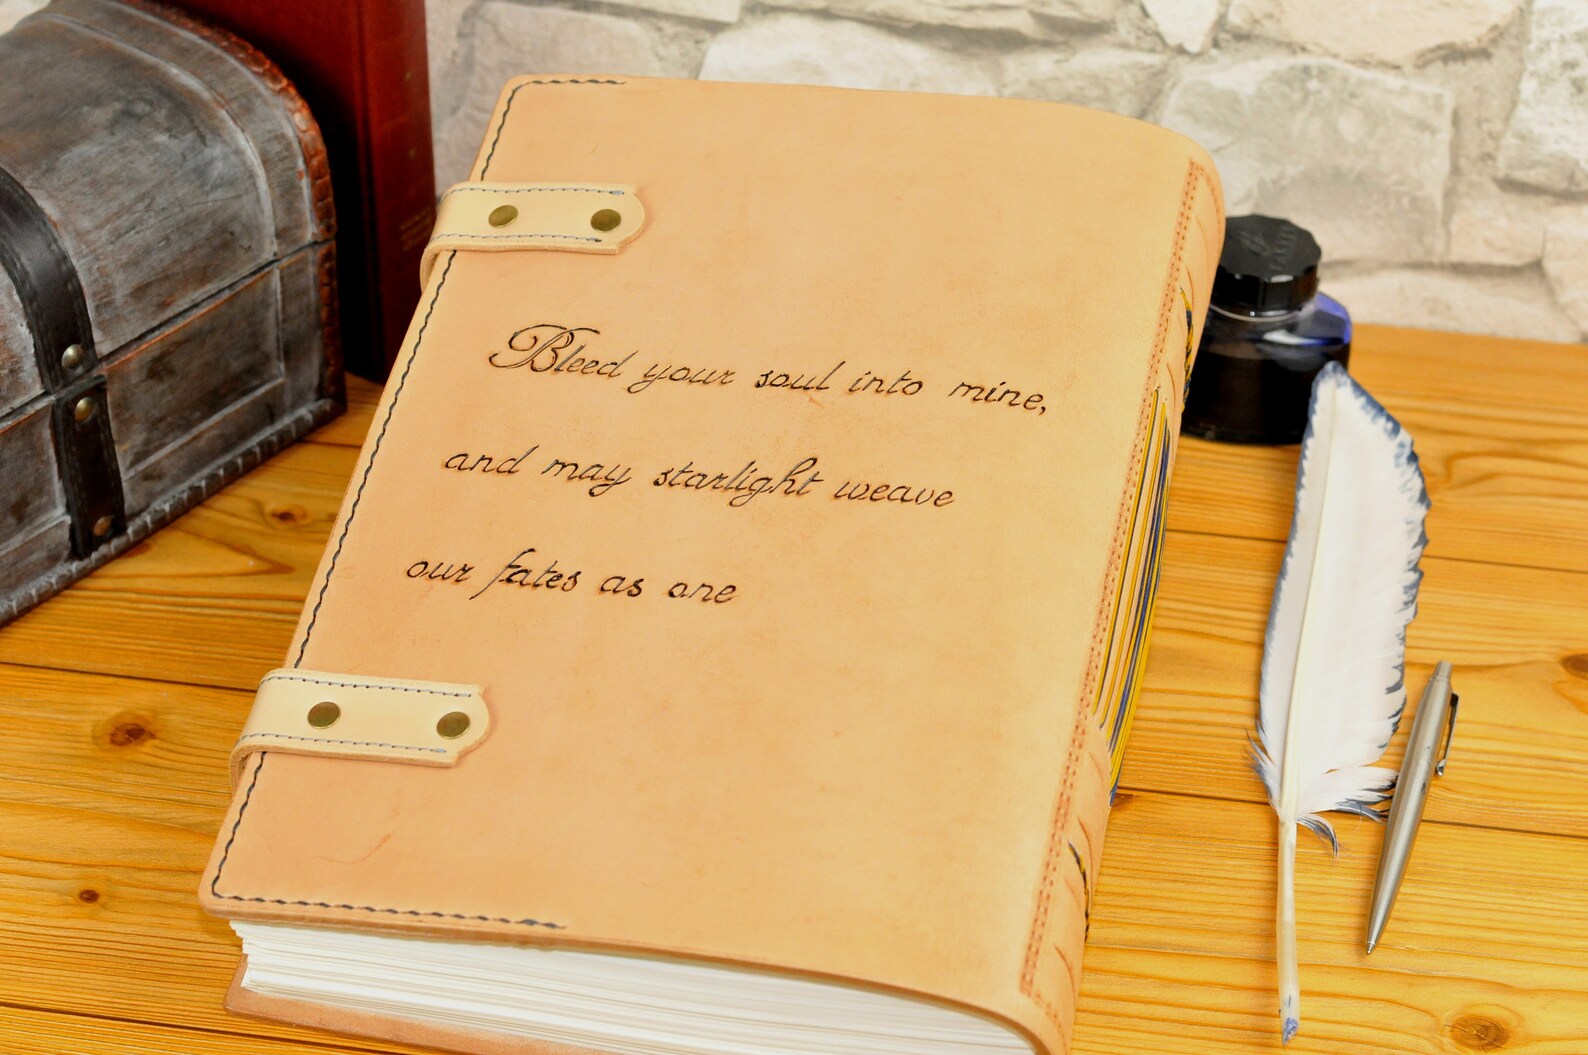 Bleed your soul into mine,
and may starlight weave
our fates as one